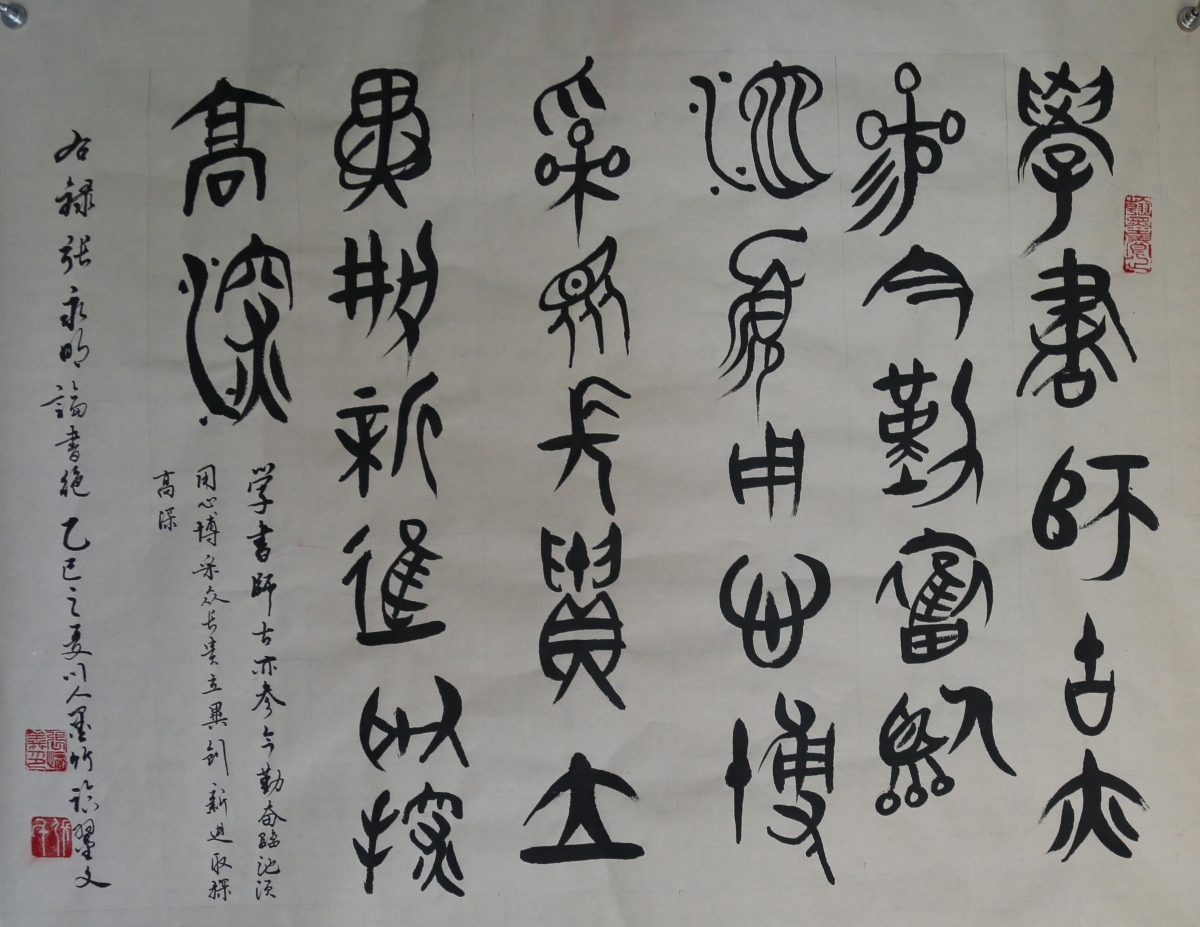 學書師古亦
參今勤奮臨
池須用心博
采眾長貴立
異刱新進取探
高深
学書師古亦参今勤奋臨池须
用心博采众长贵立異创新进取探
高深
右録张永明論書绝 乙巳之夏川人墨竹